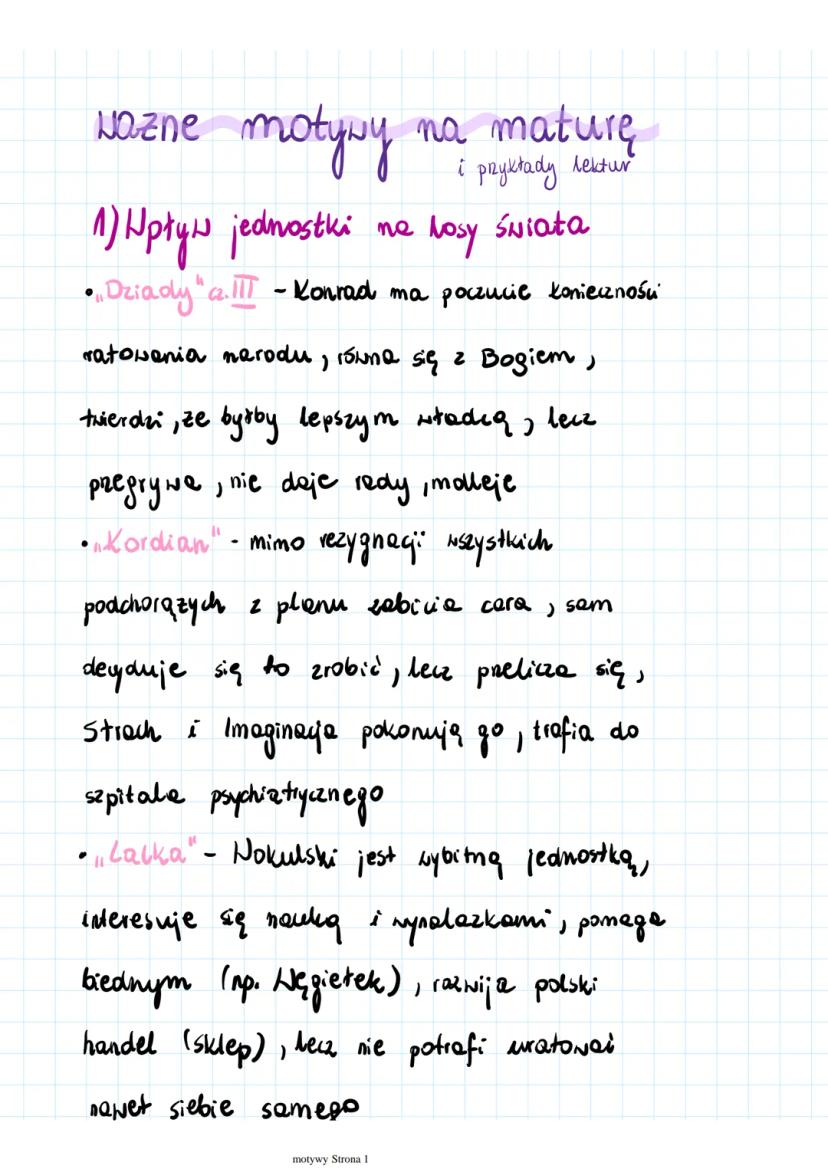 ważne motywy na maturę
i przykłady lektur
1) Wpływ jednostki na losy świata
• „Dziady" cz. III - Konrad ma poczucie konieczności
ratowania narodu, równa się z Bogiem,
twierdzi, że byłby lepszym władcą, lecz
przegrywa, nie daje rady, mdleje
• „Kordian" - mimo rezygnacji wszystkich
podchorążych z planu zabicia cara, sam
decyduje się to zrobić, lecz przelicza się,
Strach i Imaginacja pokonują go, trafia do
szpitala psychiatrycznego
• „Lalka" - Wokulski jest wybitną jednostką,
interesuje się nauką i wynalazkami, pomaga
biednym (np. Węgiełek), rozwija polski
handel (sklep), lecz nie potrafi uratować
nawet siebie samego
motywy Strona 1